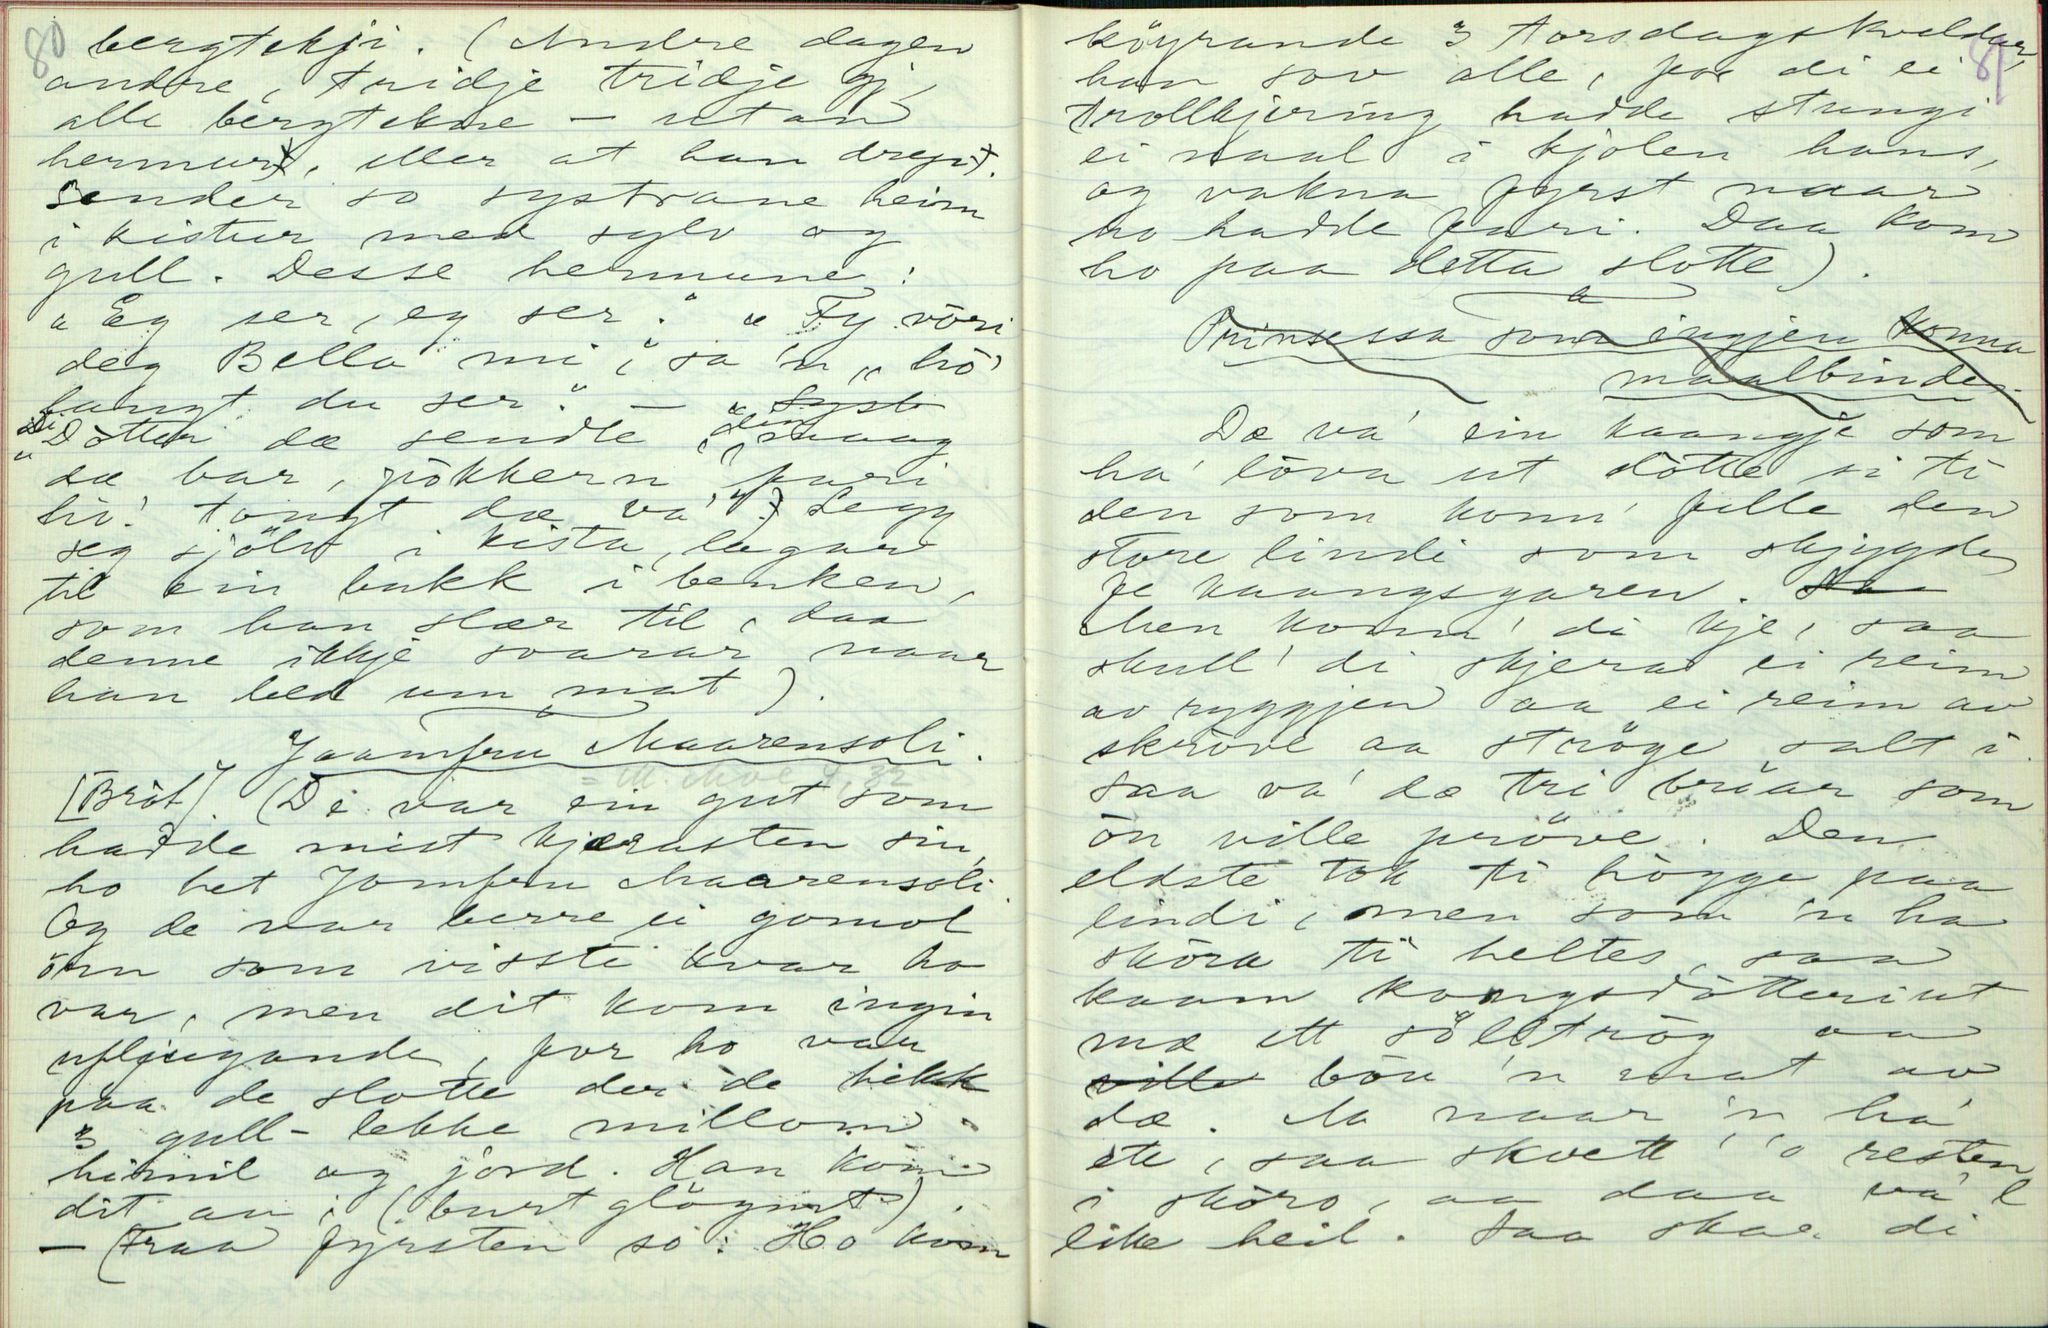 80
bergtekji. (Andre dagen
andre, tridje tridje gj,
alle bergtekne — utan
hermurt, eller at han drepi.
Sender so systrane heim
i kistur med sylv og
gull. Desse hermune:
"Eg ser, eg ser." "Fy vöri
deg Bella mi", sa 'n, "hö'
langt du ser." — "Syst
"Di Dötter dæ sendte din maag
dæ bar, pökkern fari
hi! tongt dæ va'") Legg
seg sjölv i kista, lagar
til ein bukk i benken,
som han slær til, daa
denne ikkje svarar naar
han bed um mat).
Jaamfru Maarensoli.
= M. Moe 4, 32
[Bröt]. (De var ein gut som
hadde mist kjærasten sin,
ho het Jomfru Maarensoli
Og de var berre ei gomol
örn som visste kvar ho
var, men dit kom ingin
ufljugande, for ho var
paa de slotte der de hekk
3 gull-lekke millom
himil og jord. Han kom
dit au; (burtglöymt).
— (Fraa fyrsten so: Ho kom
81
köyrande 3 torsdagskveldar,
han sov alle, for di ei
trollkjering hadde stungi
ei naal i kjolen hans,
og vakna fyrst naar
ho hadde fari. Daa kom
ho paa detta slotte).
Prinsessa som ingjen konna
maalbinde.
Dæ va' ein kaangje som
ha' löva ut dötte si ti
den som konn' felle den
store lindi som skjygde
fe kaangsgaren. Saa
Men konn' di kje, saa
skull' di skjera ei reim
av ryggjen aa ei reim av
skrövé aa ströge salt i.
Saa va' dæ tri bröar som
ön ville pröve. Den
eldste tok ti högge paa
lindi, men som 'n ha
sköra ti heltes, saa
kaam kongsdötteri ut
mæ ett söltrög aa
ville böu 'n mat av
dæ. Aa naar 'n ha'
ete, saa skvett 'o resten
i sköro, aa daa va' 'l
like heil. Saa skar di